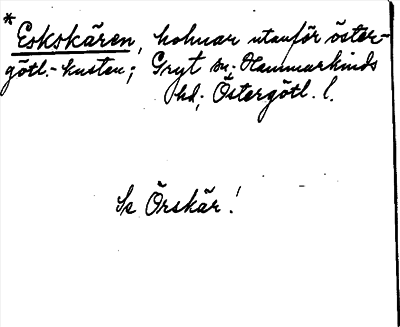 * Eskskären, holmar utanför öster-
götl.-kusten; Gryt sn; Hammarkinds
hd; Östergötl. l.
Se Örskär!